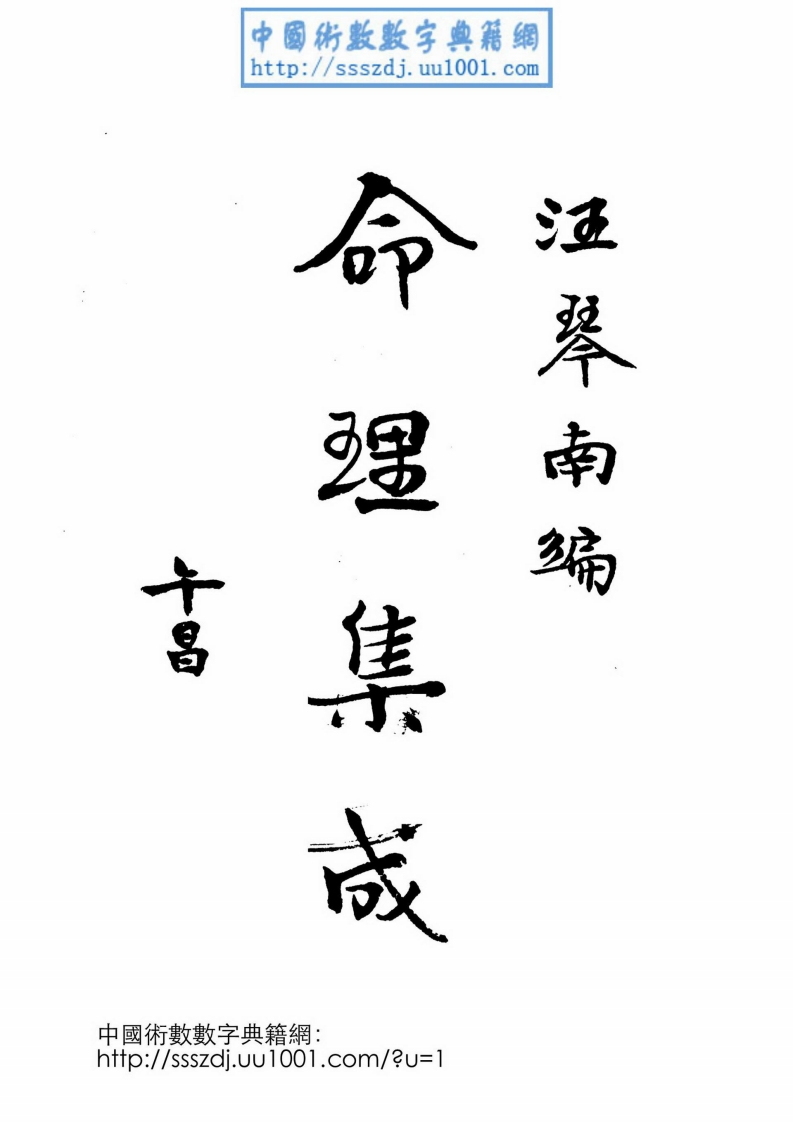 中國術數數字典籍網
http://ssszdj.uu1001.com
汪琴南編
命理集成
午昌
中國術數數字典籍網：
http://ssszdj.uu1001.com/?u=1